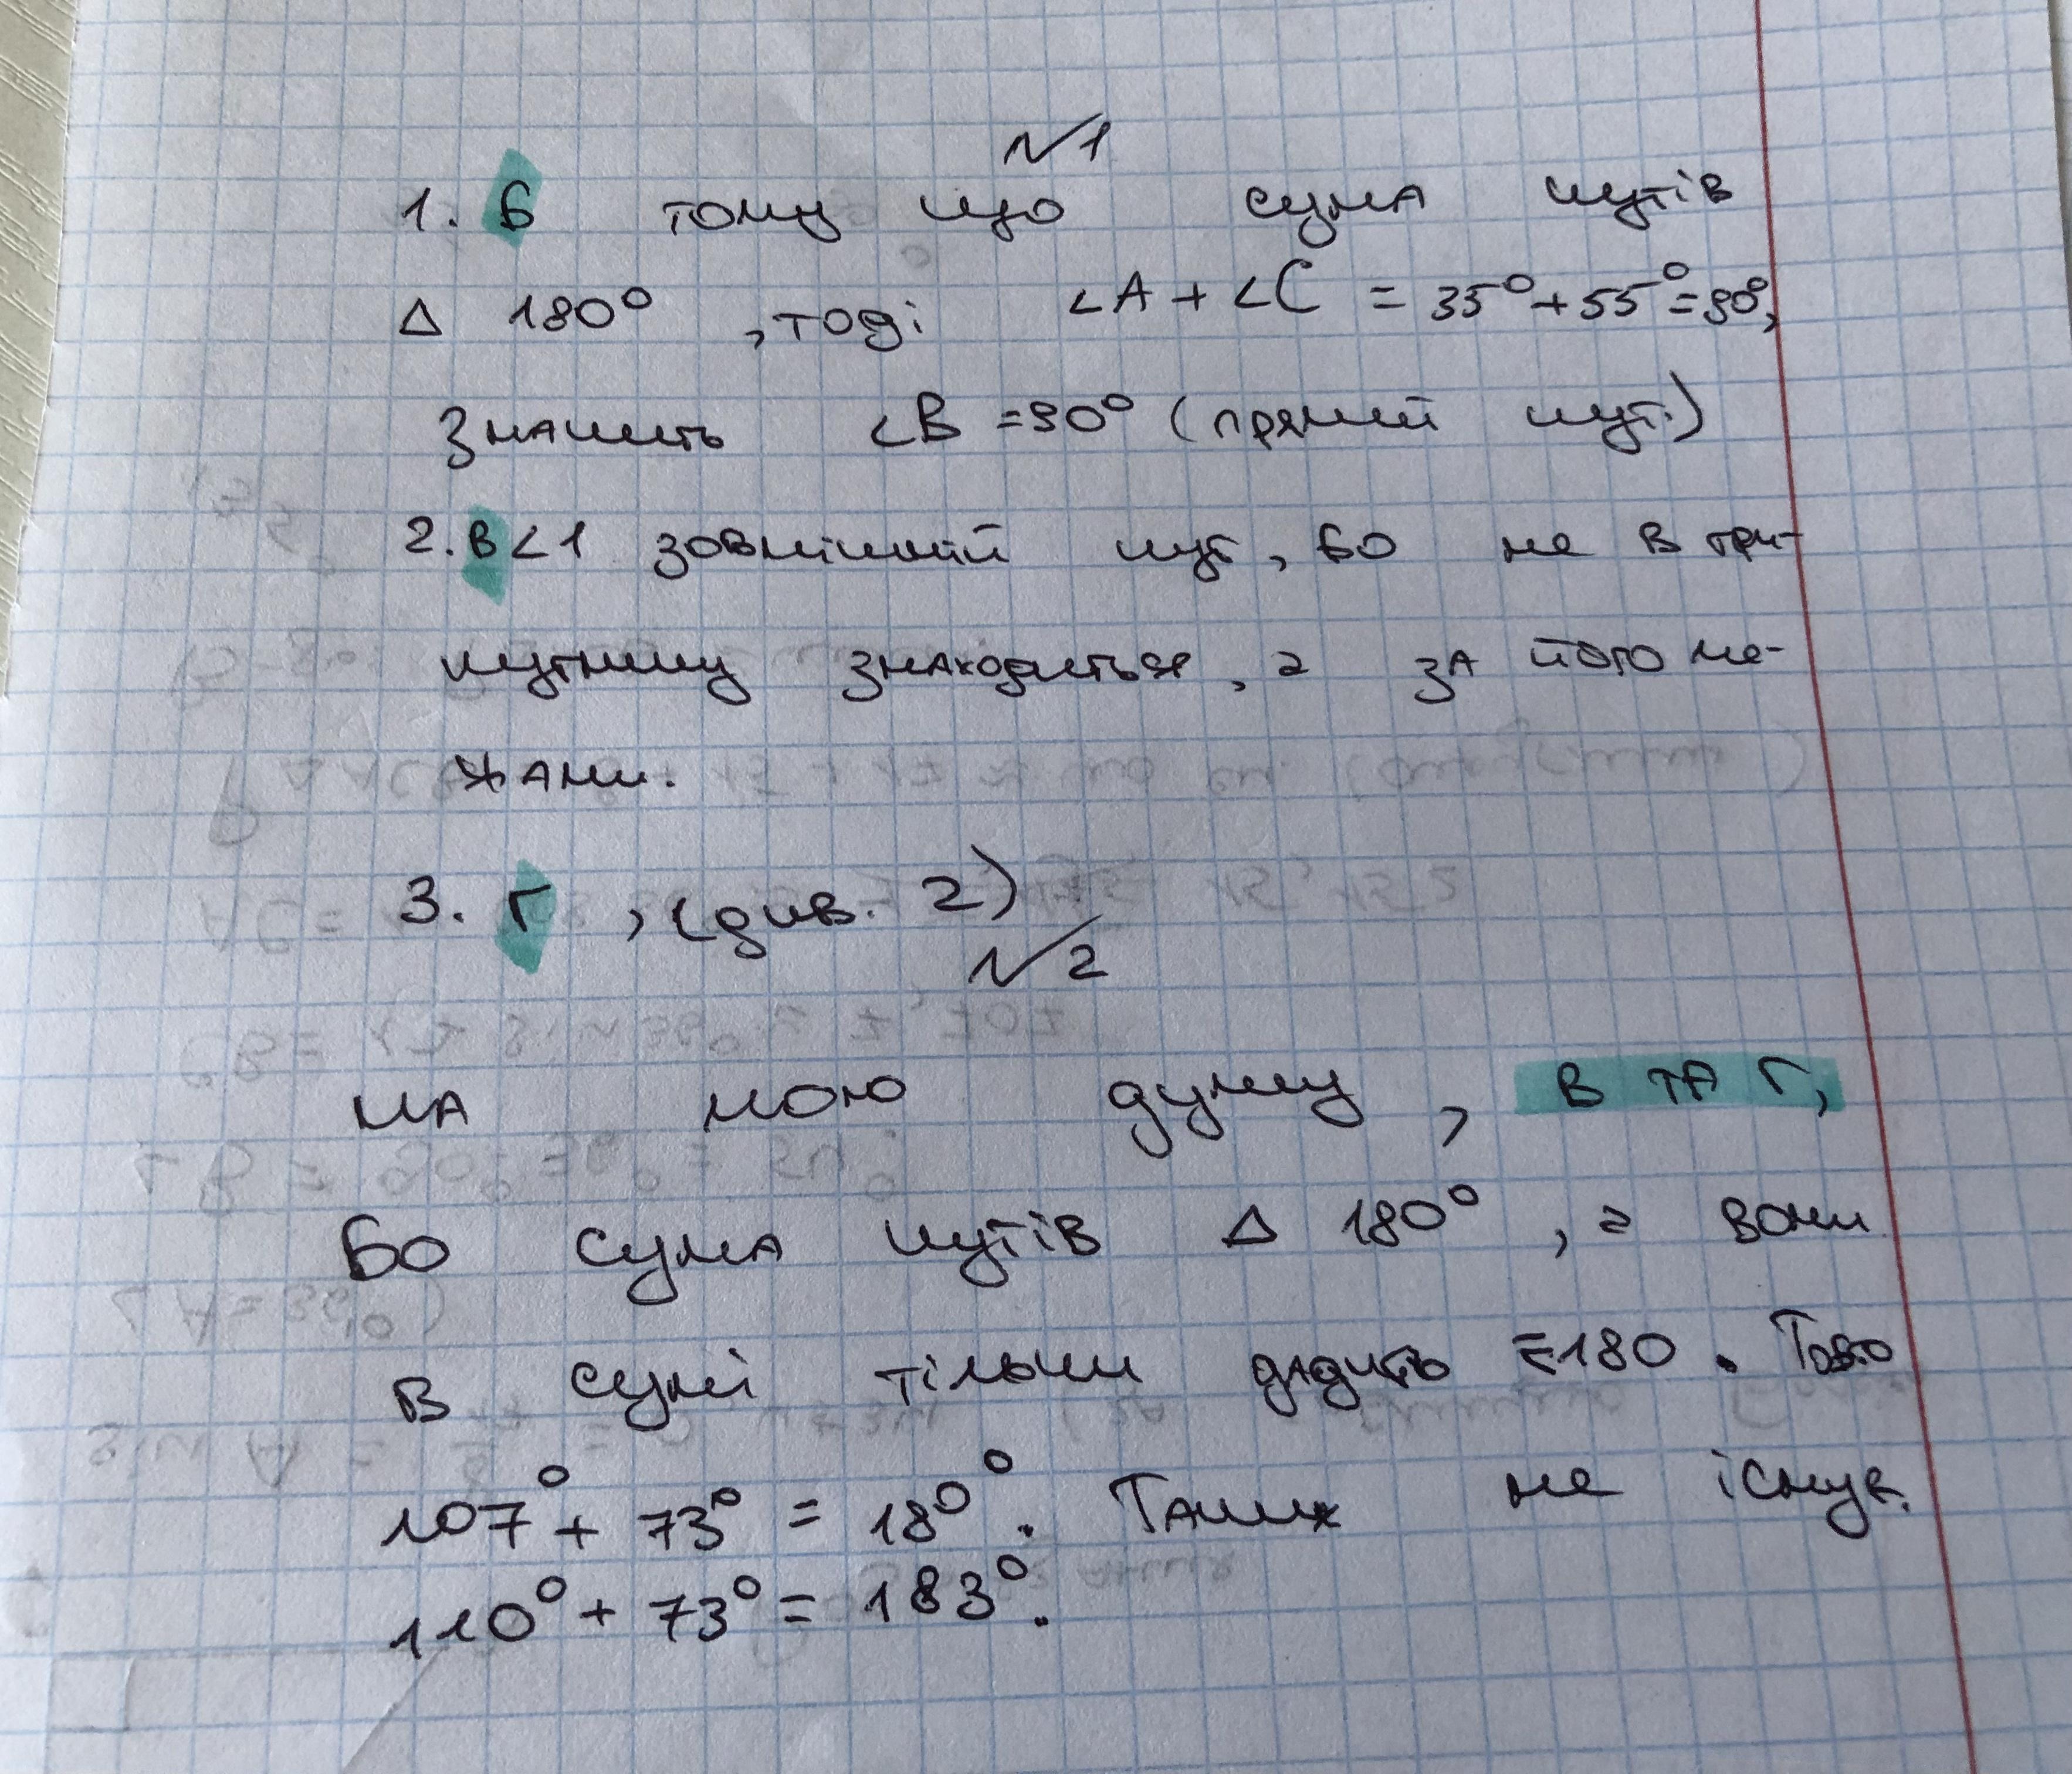 №1
1. Б тому що сума кутів
Δ 180°, тоді ∠A + ∠C = 35° + 55° = 90°,
значить ∠B = 90° (прямий кут)
2. В ∠1 зовнішній кут, бо не в три-
кутнику знаходиться, а за його ме-
жами.
3. Г, (див. 2)
№2
на мою думку, В та Г,
бо сума кутів Δ 180°, а вони
в сумі тільки дадуть =180. Тобто
107° + 73° = 180°. Таких не існує.
110° + 73° = 183°.